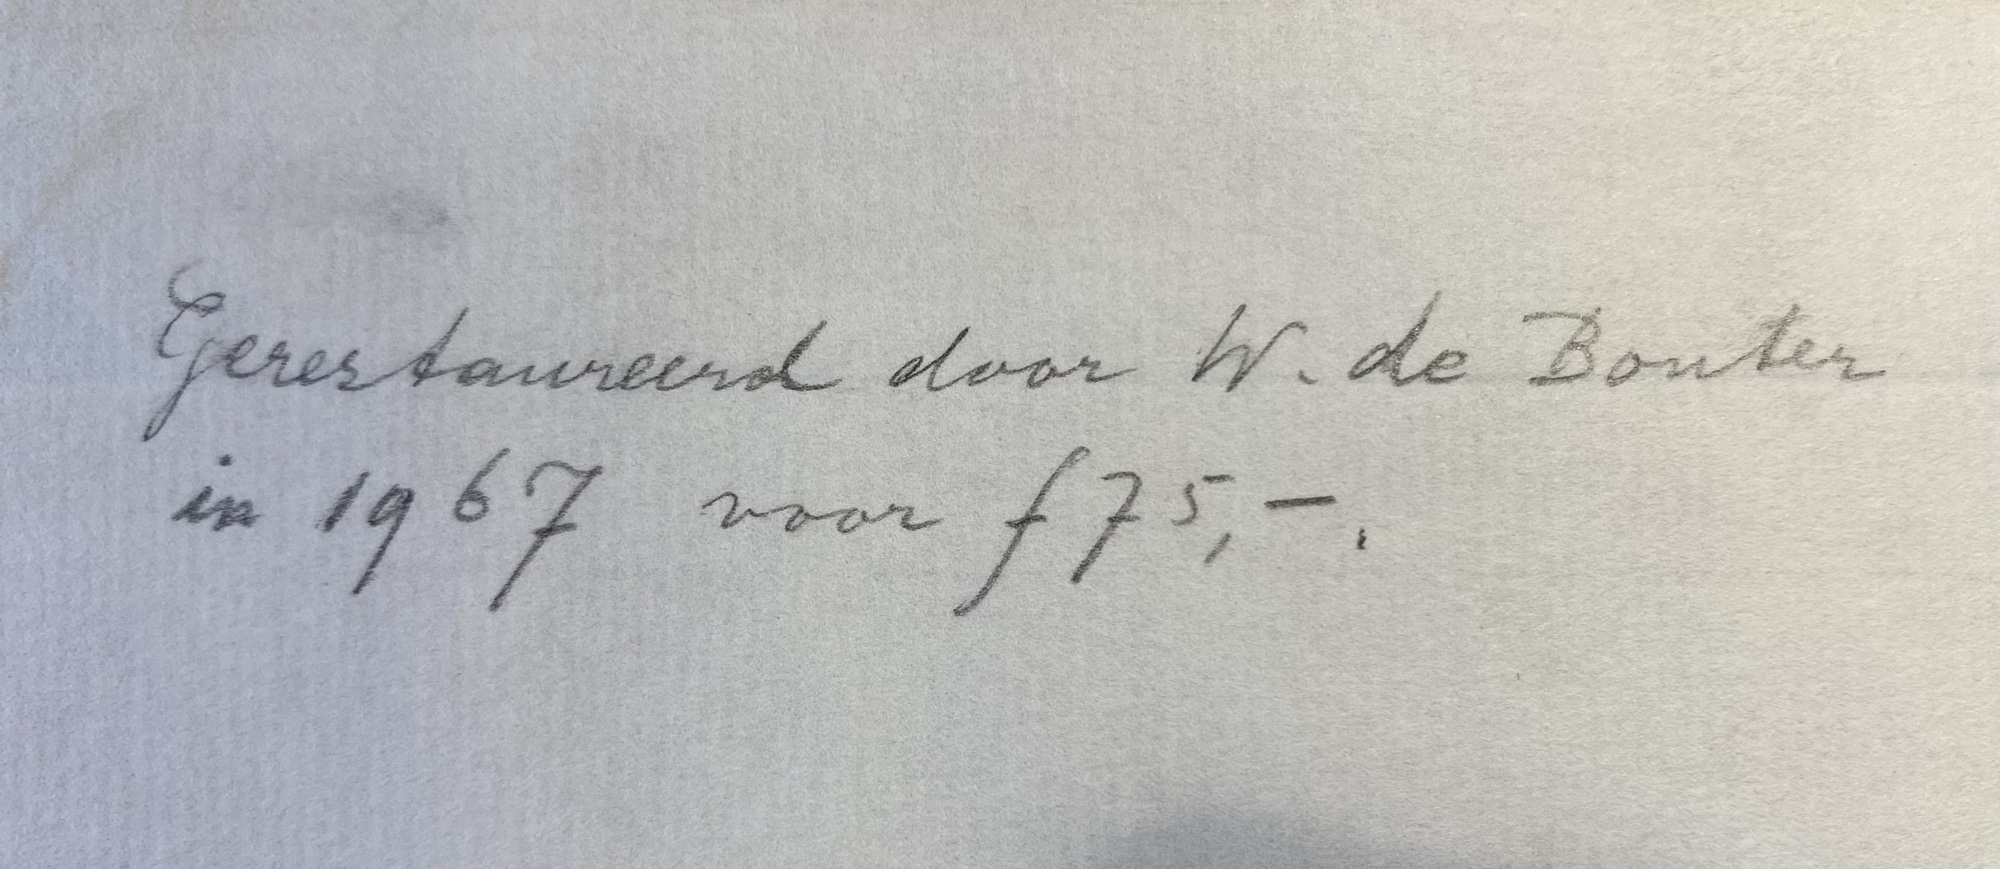 Gerestaureerd door W. de Bouter
in 1967 voor f 75,-.